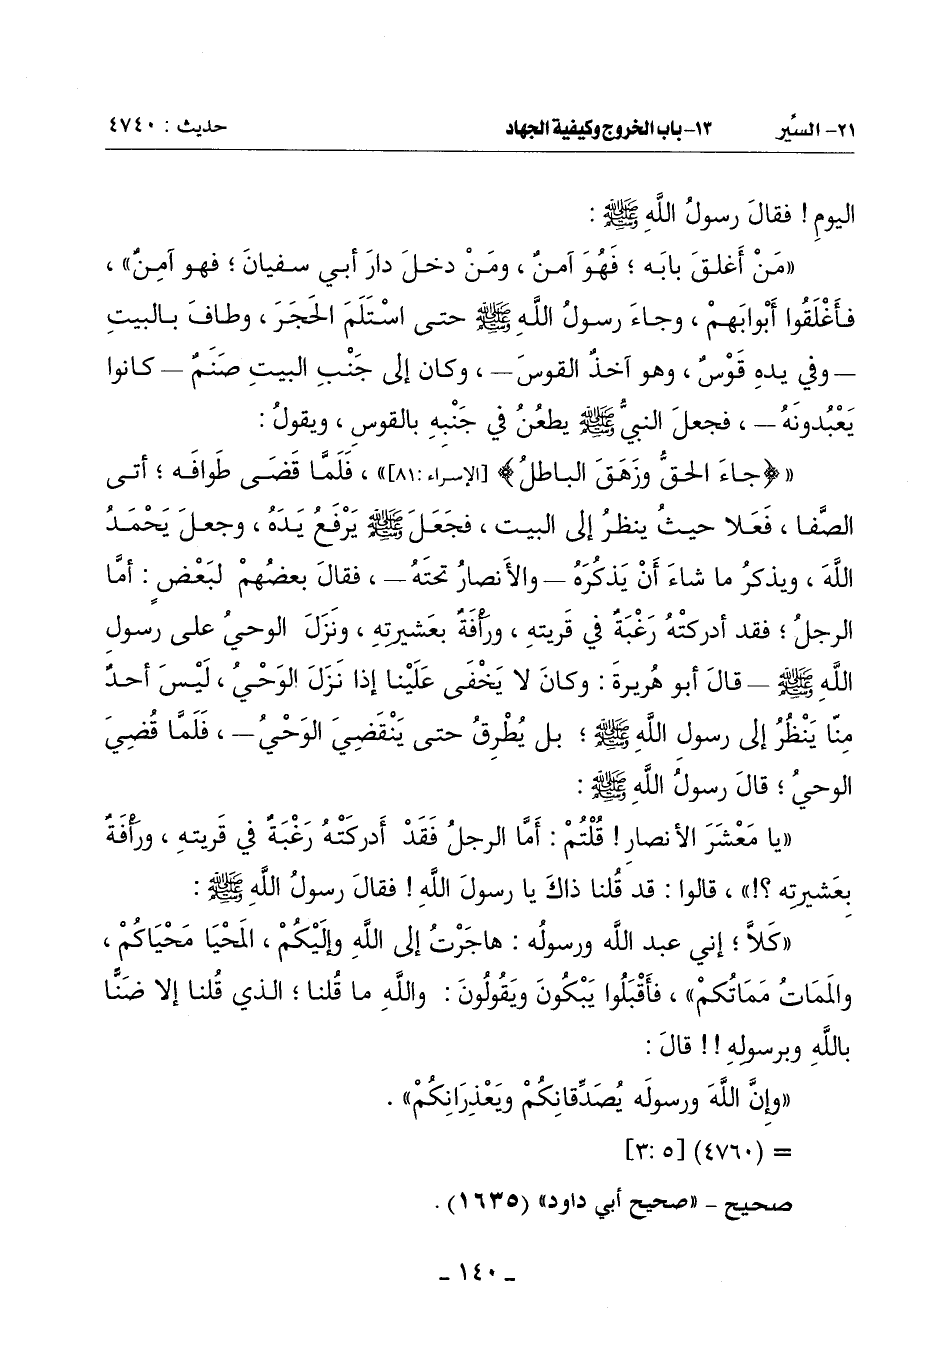 ٢١- السِّير ١٣-باب الخروج وكيفية الجهاد حديث : ٤٧٤٠
اليومِ ! فقالَ رسولُ اللَّهِ ﷺ :
«مَنْ أَغلقَ بابَه ؛ فَهُوَ آمنٌ ، ومَنْ دخلَ دارَ أبي سفيانَ ؛ فهو آمِنٌ» ،
فأَغْلَقُوا أَبْوابَهمْ ، وجاءَ رسولُ اللَّهِ ﷺ حتى اسْتَلَمَ الحَجَرَ ، وطافَ بالبيتِ
— وفي يدِهِ قَوْسٌ ، وهو آخذٌ القوسَ — ، وكان إلى جَنْبِ البيتِ صَنَمٌ — كانوا
يَعْبُدونَهُ — ، فجعلَ النبيُّ ﷺ يطعُنُ في جَنْبِهِ بالقوسِ ، ويقولُ :
«﴿جاءَ الحقُّ وزَهَقَ الباطلُ﴾ [الإسراء :٨١]» ، فَلَمَّا قَضَى طَوافَه ؛ أتى
الصَّفا ، فَعَلا حيثُ ينظرُ إلى البيت ، فجَعَلَ ﷺ يَرْفَعُ يدَهُ ، وجعلَ يَحْمَدُ
اللَّهَ ، ويذكرُ ما شاءَ أَنْ يَذكُرَهُ — والأنصارُ تحتَهُ — ، فقالَ بعضُهمْ لبَعْضٍ : أمَّا
الرجلُ ؛ فقد أدركتْهُ رَغْبَةٌ في قَريتِهِ ، ورأْفَةٌ بعَشيرتِهِ ، ونزَلَ الوحيُ على رسولِ
اللَّهِ ﷺ — قالَ أبو هُريرةَ : وكانَ لا يَخْفَى عَلَيْنا إذا نَزَلَ الوَحْيُ ، لَيْسَ أحدٌ
مِنّا يَنْظُرُ إلى رسول اللَّهِ ﷺ ؛ بل يُطْرِقُ حتى يَنْقَضِيَ الوَحْيُ — ، فَلَمَّا قُضِيَ
الوحيُ ؛ قالَ رسولُ اللَّهِ ﷺ :
«يا مَعْشَرَ الأنصارِ ! قُلْتُمْ : أَمَّا الرجلُ فَقَدْ أدركَتْهُ رَغْبَةٌ في قَريتِهِ ، ورأْفَةٌ
بِعَشيرتِه ؟!» ، قالوا : قد قُلنا ذاكَ يا رسولَ اللَّهِ ! فقالَ رسولُ اللَّهِ ﷺ :
«كَلاَّ ؛ إني عبد اللَّه ورسولُه : هاجَرْتُ إلى اللَّهِ وإلَيْكُمْ ، المَحْيَا مَحْيَاكُمْ ،
والمَماتُ مَمَاتُكمْ» ، فأَقْبَلُوا يَبْكُونَ ويَقُولُونَ : واللَّهِ ما قُلنا ؛ الذي قُلنا إلا ضَنًّا
باللَّهِ وبرسولِهِ !! قالَ :
«وإِنَّ اللَّهَ ورسولَه يُصَدِّقانِكُمْ ويَعْذِرَانِكُمْ» .
= (٤٧٦٠) [٥ :٣]
صحيح – «صحيح أبي داود» (١٦٣٥) .
- ١٤٠ -